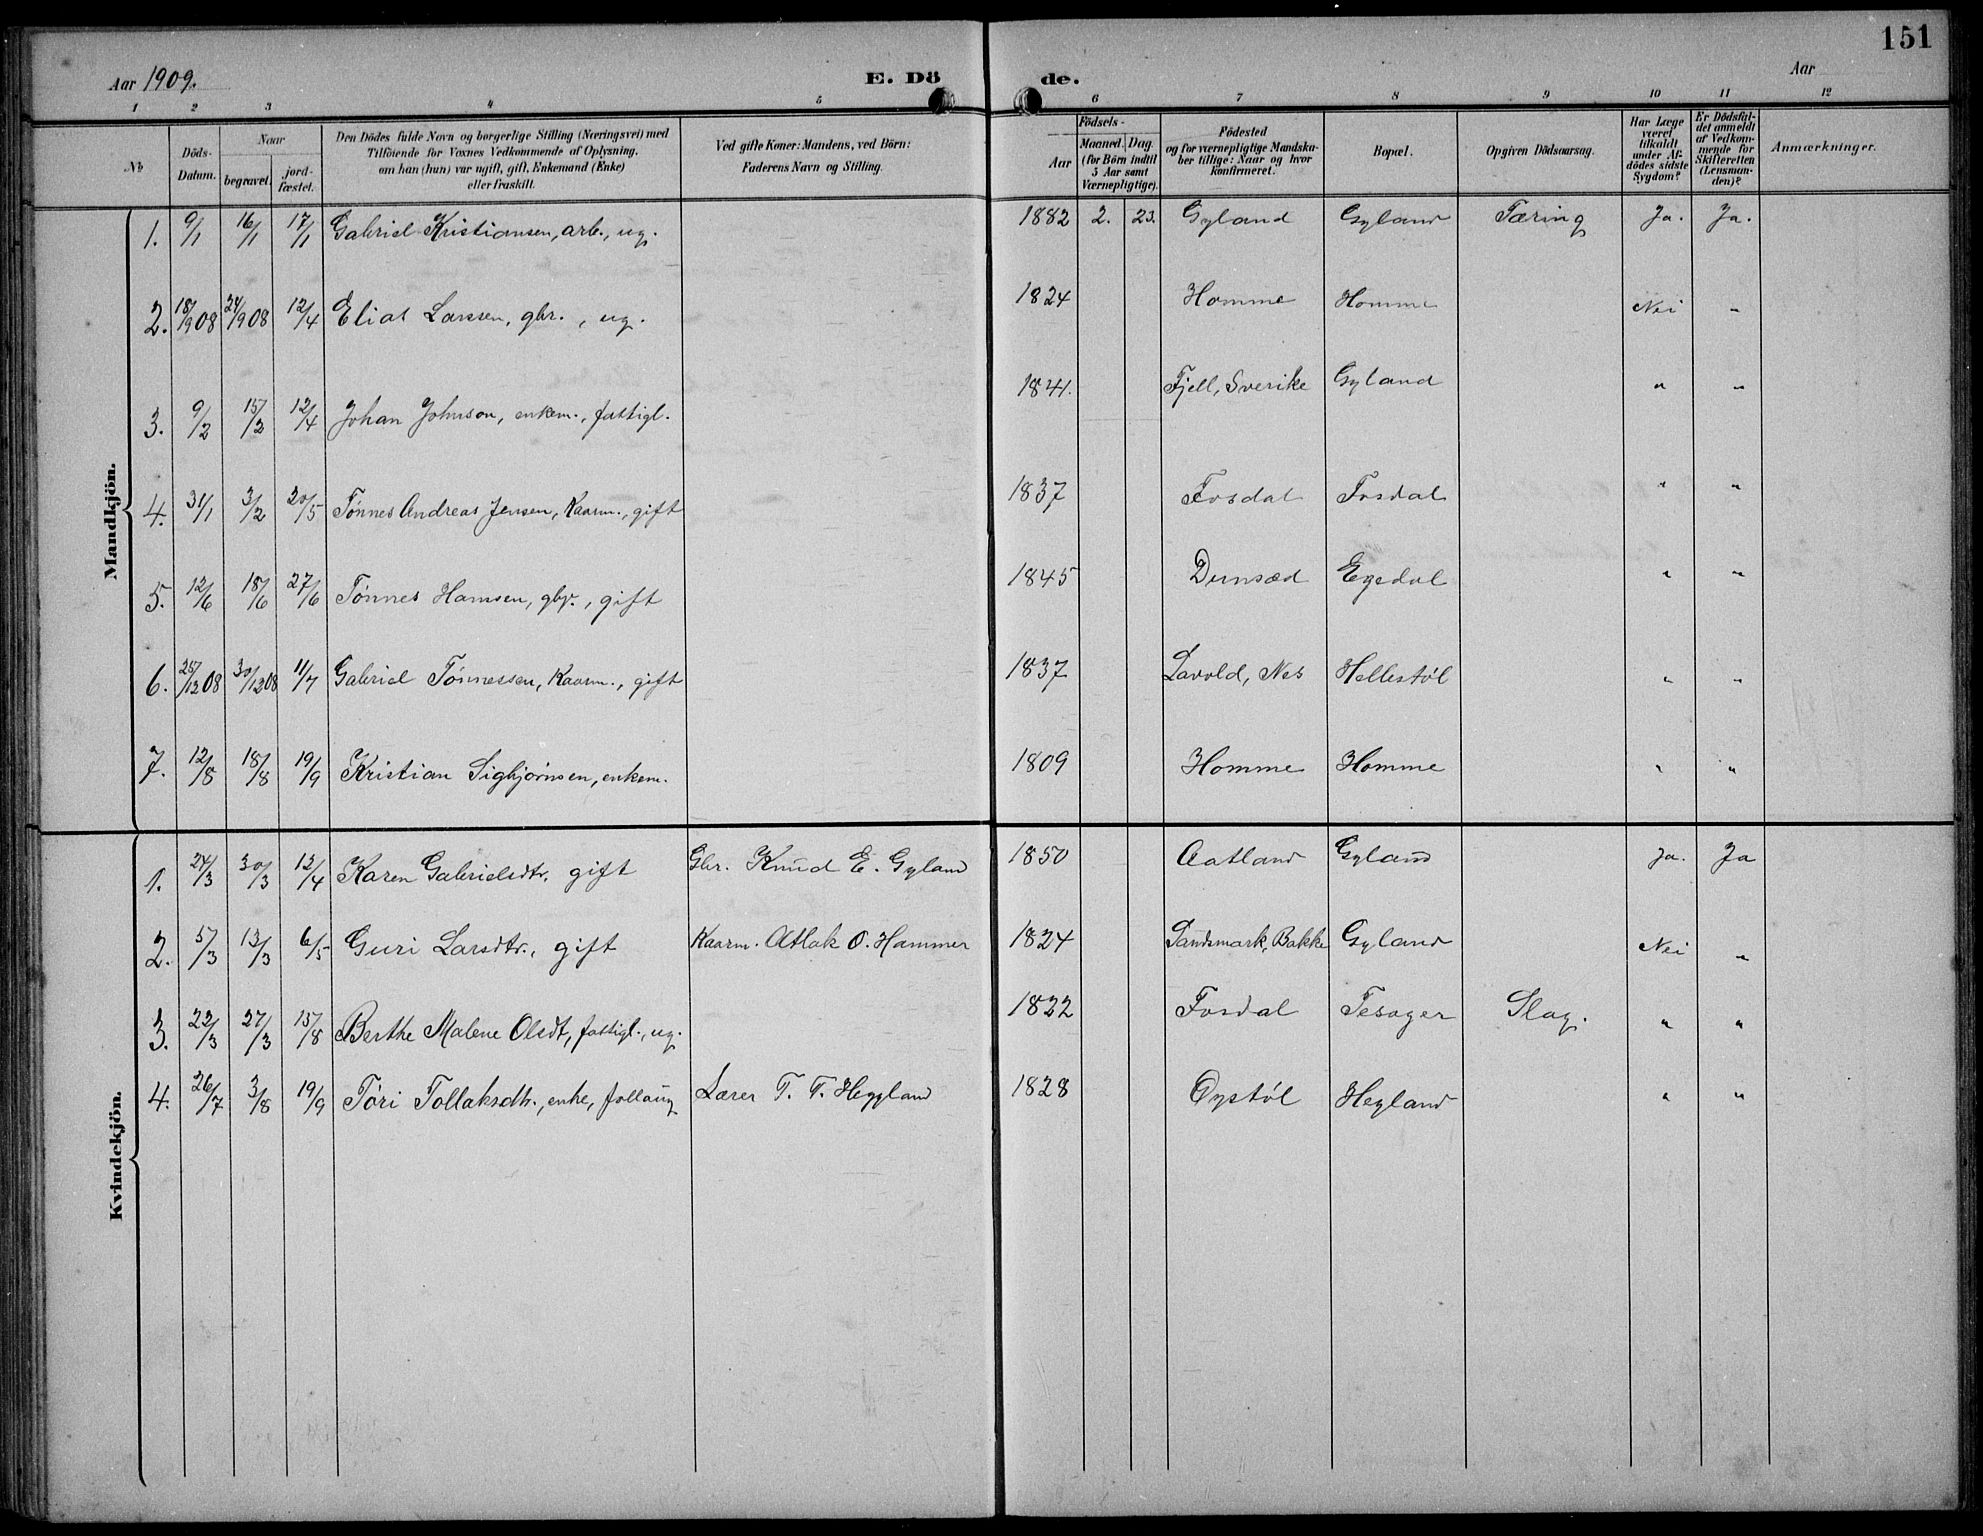 151
Aar 1909. E. Dö de. Aar
1 2 3 4 5 6 7 8 9 10 11 12
No
Döds-Datum.
Naar begravet. jord-fæstet.
Den Dödes fulde Navn og borgerlige Stilling (Næringsvei) med
Tilföiende for Voxnes Vedkommende af Oplysning,
om han (hun) var ugift, gift, Enkemand (Enke)
eller fraskilt.
Ved gifte Koner: Mandens, ved Börn:
Faderens Navn og Stilling.
Födsels-
Aar Maaned. Dag.
(for Börn indtil
5 Aar samt
Værnepligtige).
Födested
og for værnepligtige Mandska-
ber tillige: Naar og hvor
konfirmeret.
Bopæl.
Opgiven Dödsaarsag.
Har Læge
været
tilkaldt
under Af-
dödes sidste
Sygdom?
Er Dödsfal-
det anmeldt
af Vedkom-
mende for
Skifteretten
(Lensman-
den)?
Anmærkninger.
Mandkjön.
1. 9/1 16/1 17/1 Gabriel Kristiansen, arb., ug. 1882 2. 23. Gyland Gyland Tæring Ja. Ja.
2. 18/9 08 24/9 08 12/4 Elias Larsen, gbr., ug. 1824 Homme Homme Nei "
3. 9/2 15/2 12/4 Johan Johnson, enkem., fattigl. 1841. Fjell, Sverike Gyland " "
4. 31/1 3/2 20/5 Tønnes Andreas Jensen, Kaarm., gift 1837 Fosdal Fosdal " "
5. 12/6 18/6 27/6 Tønnes Hansen, gbr., gift 1845 Dunsæd Egedal " "
6. 25/12 08 30/12 08 11/7 Gabriel Tønnessen, Kaarm., gift 1837 Lavold, Nes Hellestøl " "
7. 12/8 18/8 19/9 Kristian Sigbjørnsen, enkem. 1809 Homme Homme " "
Kvindekjön.
1. 24/3 30/3 12/4 Karen Gabrielsdtr. gift Gbr. Knud E. Gyland 1850 Aatland Gyland Ja. Ja
2. 5/3 13/3 6/5 Guri Larsdtr., gift Kaarm. Atlak O. Hammer 1824 Sandsmark, Bakke Gyland Nei "
3. 22/3 27/3 15/8 Berthe Malene Olsdt, fattigl., ug. 1822 Fosdal Tesager Slag. " "
4. 26/7 3/8 19/9 Tóri Tollaksdtr., enke, Lærer T. T. Heggland 1828 Øystøl Hegland " "